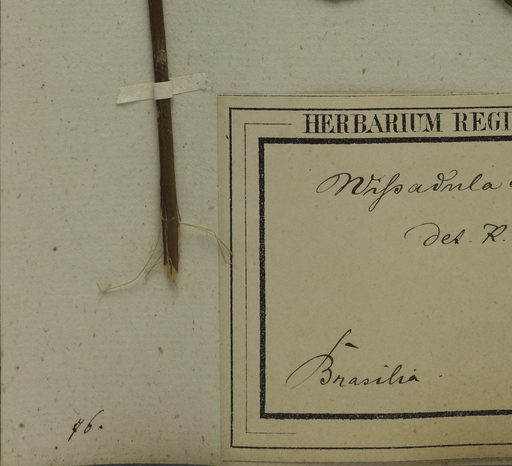 HERBARIUM REGI
Wissadula
det. K.
Brasilia.
76.